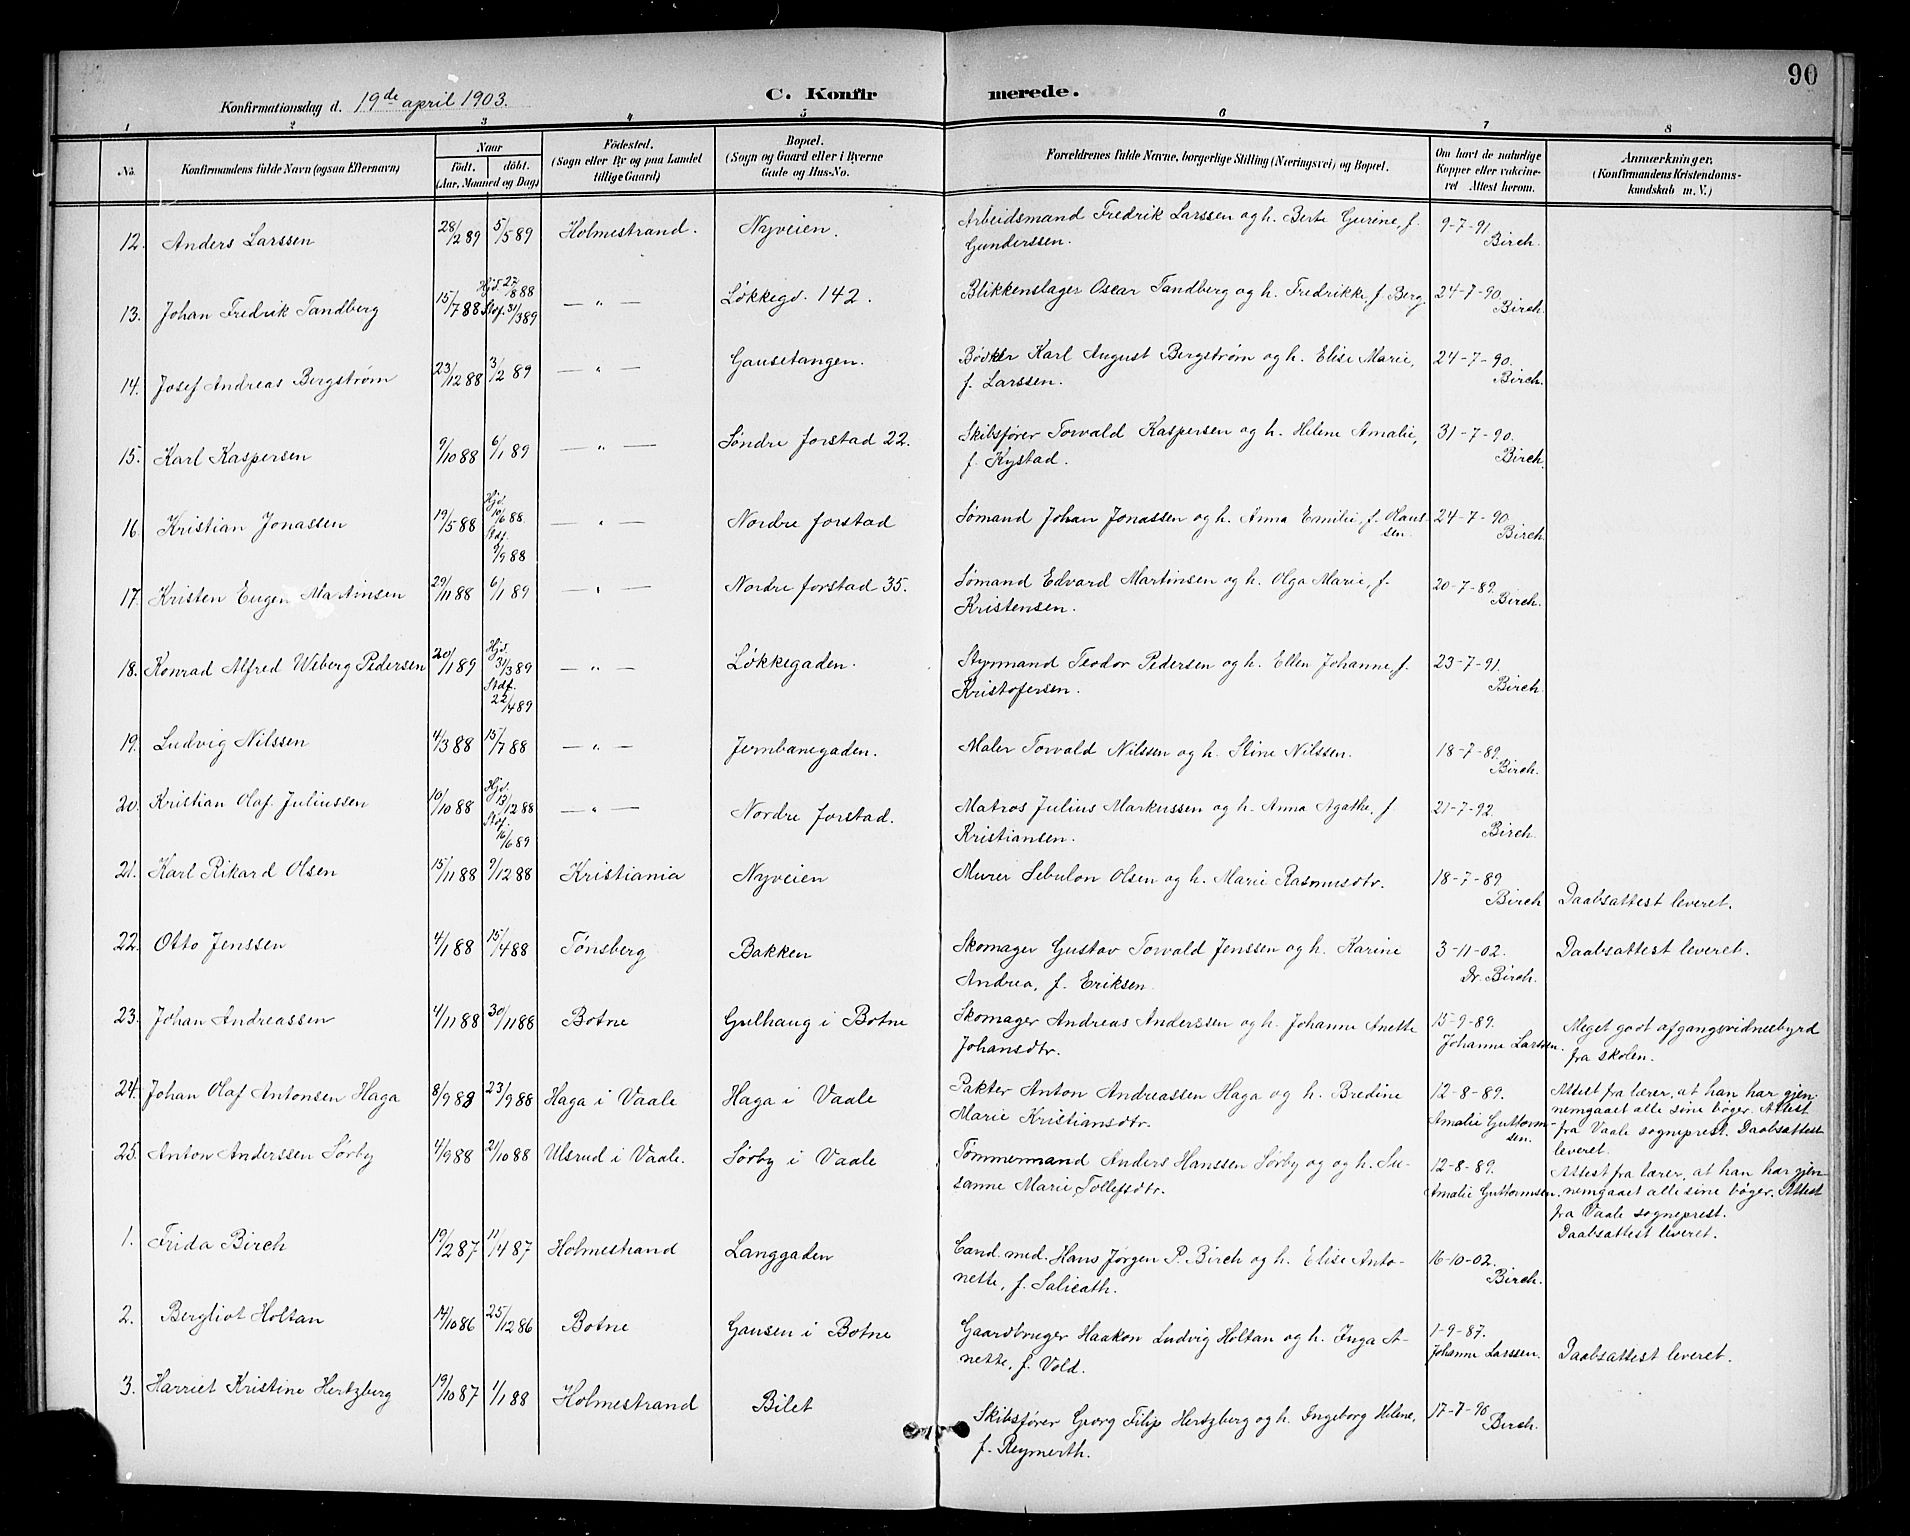 90
Konfirmationsdag d. 19de april 1903.
C. Konfirmerede.
1 2 3 4 5 6 7 8
No. Konfirmandens fulde Navn (ogsaa Efternavn) Naar Födt. döbt. (Aar, Maaned og Dag) Födested. (Sogn eller By og paa Landet tillige Gaard) Bopæl. (Sogn og Gaard eller i Byerne Gade og Hus-No. Forældrenes fulde Navne, borgerlige Stilling (Næringsvei) og Bopæl. Om havt de naturlige Kopper eller vakcineret Attest herom. Anmærkninger. (Konfirmandens Kristendomskundskab m. V.)
12. Anders Larssen 28/2 89 5/5 89 Holmestrand. Nyveien. Arbeidsmand Fredrik Larssen og h. Berte Gurine, f. Gunderssen. 9-7-91 Birch.
13. Johan Fredrik Tandberg 15/7 88 Hjd. 27/8 88 Stdf. 31/3 89 — " — Løkkegd. 142. Blikkenslager Oscar Tandberg og h. Fredrikke, f. Berg. 24-7-90. Birch.
14. Josef Andreas Bergstrøm 23/12 88 3/2 89 — " — Gausetangen. Bødker Karl August Bergstrøm og h. Elise Marie, f. Larssen. 24-7-90. Birch.
15. Karl Kaspersen 9/10 88 6/1 89 — " — Søndre forstad 22. Skibsfører Torvald Kaspersen og h. Helene Amalie, f. Kystad. 31-7-90. Birch.
16. Kristian Jonassen 19/5 88 Hjd. 10/6 88 Stdf. 9/9 88 — " — Nordre forstad Sømand Johan Jonassen og h. Anna Emilie, f. Olaussen. 24-7-90. Birch.
17. Kristen Eugen Martinsen 29/11 88 6/1 89 — " — Nordre forstad 35. Sømand Edvard Martinsen og h. Olga Marie, f. Kristensen. 20-7-89. Birch.
18. Konrad Alfred Wiberg Pedersen 20/1 89 Hjd. 31/3 89 Stdf. 22/4 89 — " — Løkkegaden. Styrmand Teodor Pedersen og h. Ellen Johanne, f. Kristofersen. 23-7-91. Birch.
19. Ludvig Nilssen 4/3 88 15/7 88 — " — Jernbanegaden. Maler Torvald Nilssen og h. Stine Nilssen. 18-7-89. Birch.
20. Kristian Olaf Juliussen 16/10 88 Hjd. 13/12 88 Stdf. 16/6 89 — " — Nordre forstad. Matros Julius Markussen og h. Anna Agathe, f Kristiansen. 21-7-92. Birch.
21. Karl Rikard Olsen 15/11 88 9/12 88 Kristiania Nyveien Murer Sebulon Olsen og h. Marie Rasmusdtr. 18-7-89 Birch Daabsattest leveret.
22. Otto Jenssen 4/1 88 15/4 88 Tønsberg Bakken Skomager Gustav Torvald Jenssen og h. Karine Andrea, f. Eriksen. 3-11-02. Dr. Birch. Daabsattest leveret.
23. Johan Andreassen 4/11 88 30/11 88 Botne Gulhaug i Botne Skomager Andreas Anderssen og h. Johanne Anette Johansdtr. 15-9-89. Johanne Larssen. Meget godt afgangsvidnesbyrd fra skolen.
24. Johan Olaf Antonsen Haga 8/9 88 23/9 88 Haga i Vaale Haga i Vaale Pakter Anton Andreassen Haga og h. Bredine Marie Kristiansdtr. 12-8-89. Amalie Guttormsen. Attest fra lærer, at han har gjennemgaaet alle sine bøger. Attest fra Vaale sogneprest. Daabsattest leveret.
25. Anton Anderssen Sørby 4/9 88 21/10 88 Ulsrud i Vaale. Sørby i Vaale Tømmermand Anders Hanssen Sørby og og h. Susanne Marie Tollefsdtr. 12-8-89. Amalie Guttormsen. Attest fra lærer, at han har gjennemgaaet alle sine bøger. Attest fra Vaale sogneprest. Daabsattest leveret.
1. Frida Birch 19/2 87 11/4 87 Holmestrand Langgaden Cand. med. Hans Jørgen P. Birch og h. Elise Antonette, f. Salicath. 16-10-02. Birch.
2. Bergliot Holtan 14/10 86 25/12 86 Botne Gausen i Botne Gaardbruger Haakon Ludvig Holtan og h. Inga Anette, f. Vold. 1-9-87. Johanne Larssen. Daabsattest leveret.
3. Harriet Kristine Hertzberg 19/10 87 1/1 88 Holmestrand Bilet Skibsfører Georg Filip Hertzberg og h. Ingeborg Helene, f. Reymerth. 17-7-90 Birch.